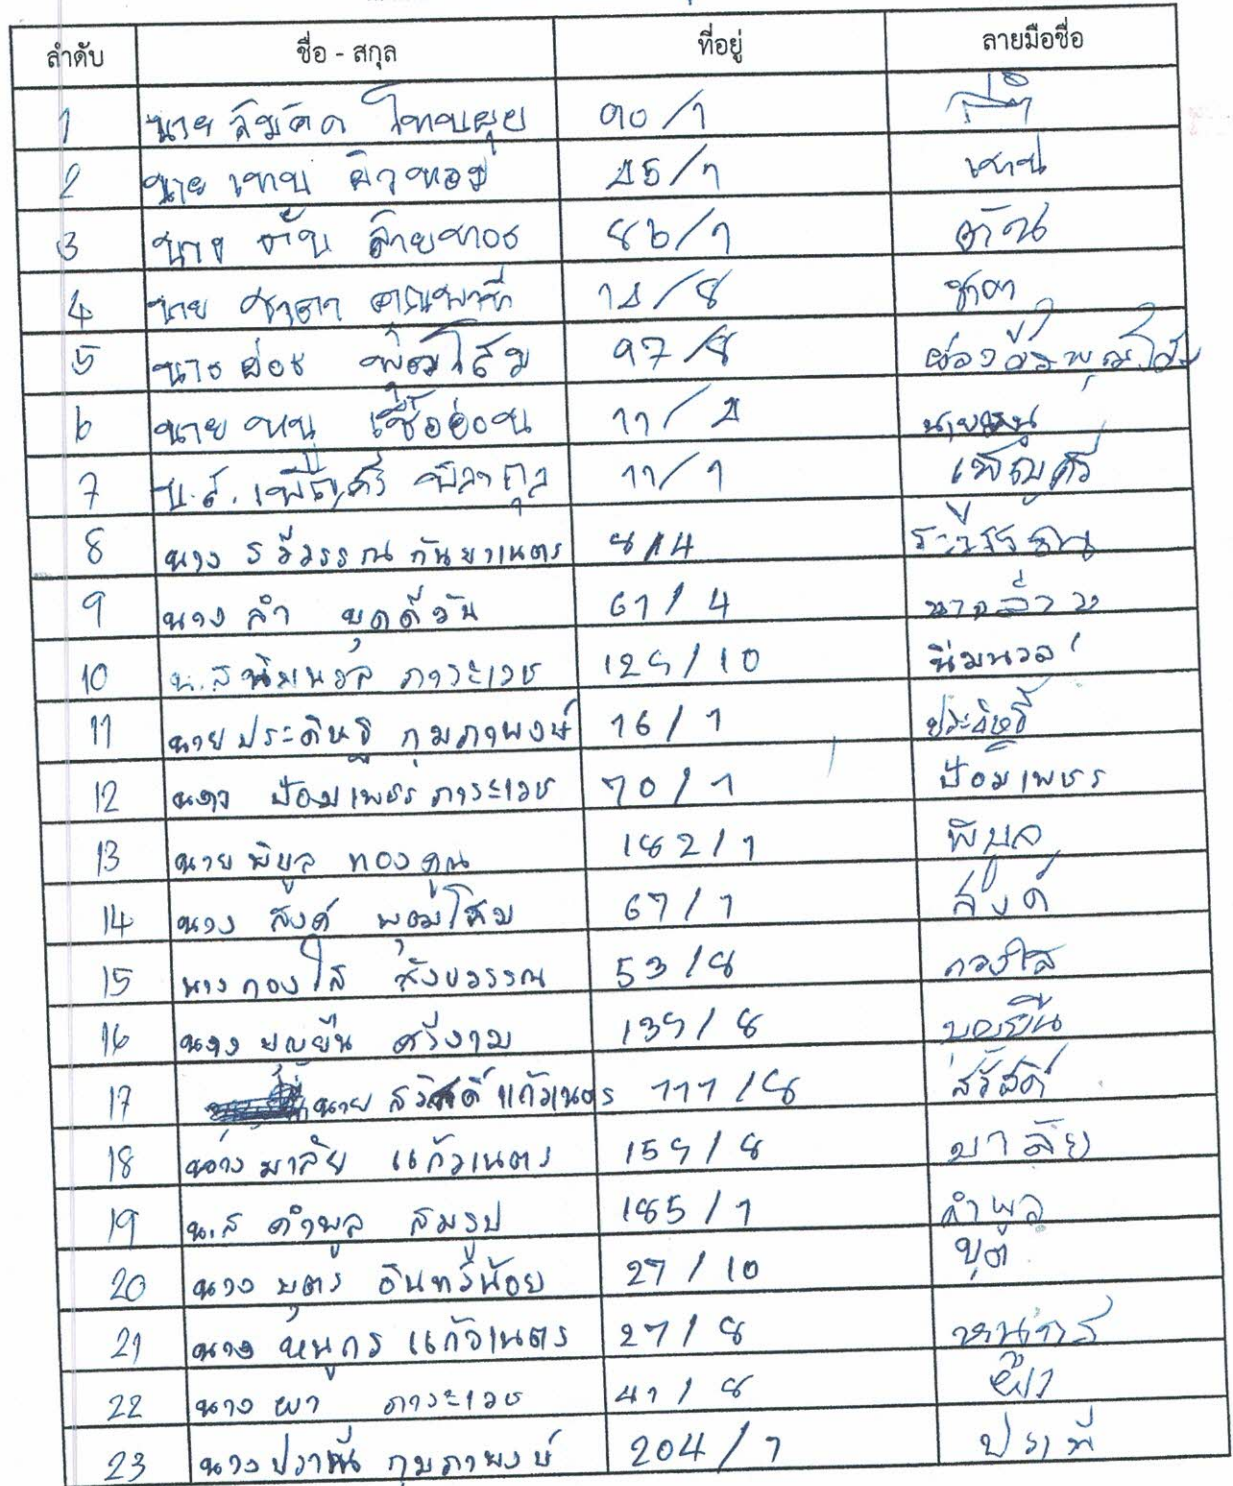 ลำดับ ชื่อ - สกุล ที่อยู่ ลายมือชื่อ
1 นาย สมคิด โทนผุย 90/1
2 นาย เทน ผิวทอง 25/1 เทน
3 นาง ตัน สายทอง 86/1 ตัน
4 นาย ชาดา 12/8 ชาดา
5 นาง ผ่อง พุ่มโสม 97/8
6 นาย หนู เชื้ออ่อน 11/2 นายหนู
7 น.ส. เพ็ญศรี พิลากุล 11/1 เพ็ญศรี
8 นาง รวีวรรณ กันยาเนตร 8/4 ระวีวรรณ
9 นาง ลำ บุดดีวัน 61/4
10 น.ส นิ่มนวล ภาระเวช 129/10 นิ่มนวล
11 นาย ประดิษฐ์ กุมภาพงษ์ 16/1 ประดิษฐ์
12 นาง ป้อมเพชร ภาระเวช 70/1 ป้อมเพชร
13 นาย พิบูล ทองคูณ 182/1 พิบูล
14 นาง สงค์ พุ่มโสม 67/1 สงค์
15 นาง กองใส สังขวรรณ 53/8 กองใส
16 นาง บุญยืน ศรีงาม 139/8 บุญยืน
17 นาย สวัสดิ์ แก้วเนตร 111/8 สวัสดิ์
18 นาง มาลัย แก้วเนตร 159/8 มาลัย
19 น.ส คำพูล สมรูป 185/1 คำพูล
20 นาง บุตร อินทรีน้อย 27/10 บุต
21 นาง หนูกร แก้วเนตร 27/8
22 นาง ผา ภาระเวช 41/8 ผา
23 นาง ปราณี กุมภาพงษ์ 204/1 ปรานี